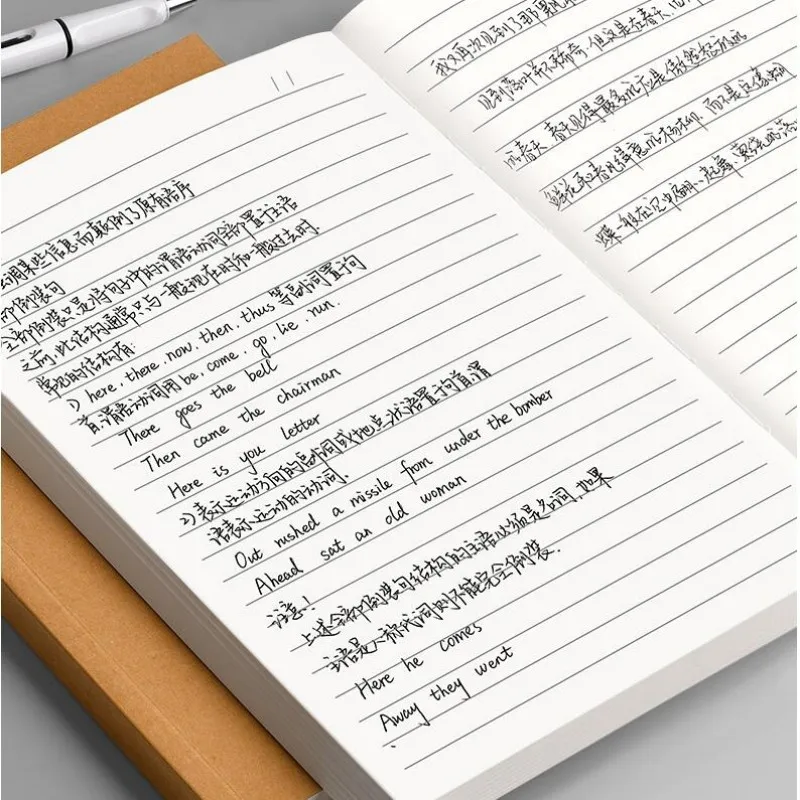 调某些信息而颠倒了原有语序
部倒装句
全部倒装只是将句子中的谓语动词全部置于主语
之前,此结构通常只与一般现在时和一般过去时.
常见的结构有:
1) here, there, now, then, thus 等副词置于句
首,谓语动词用 be, come, go, lie, run.
There goes the bell
Then came the chairman
Here is you letter
2)表示运动方向的副词或地点状语置于句首,谓
语表示运动的动词.
Out rushed a missile from under the bomber
Ahead sat an old woman
注意!
上述全部倒装句结构的主语必须是名词,如果
主语是人称代词则不能完全倒装.
Here he comes
Away they went
我又再次见到了那
见到落叶并不稀奇,但这是在春天,
的春天.春天见得最多的应是傲然绽放的
鲜花和春风得意的杨柳,而不是这像蝴
蝶一般在沉中翩翩起舞